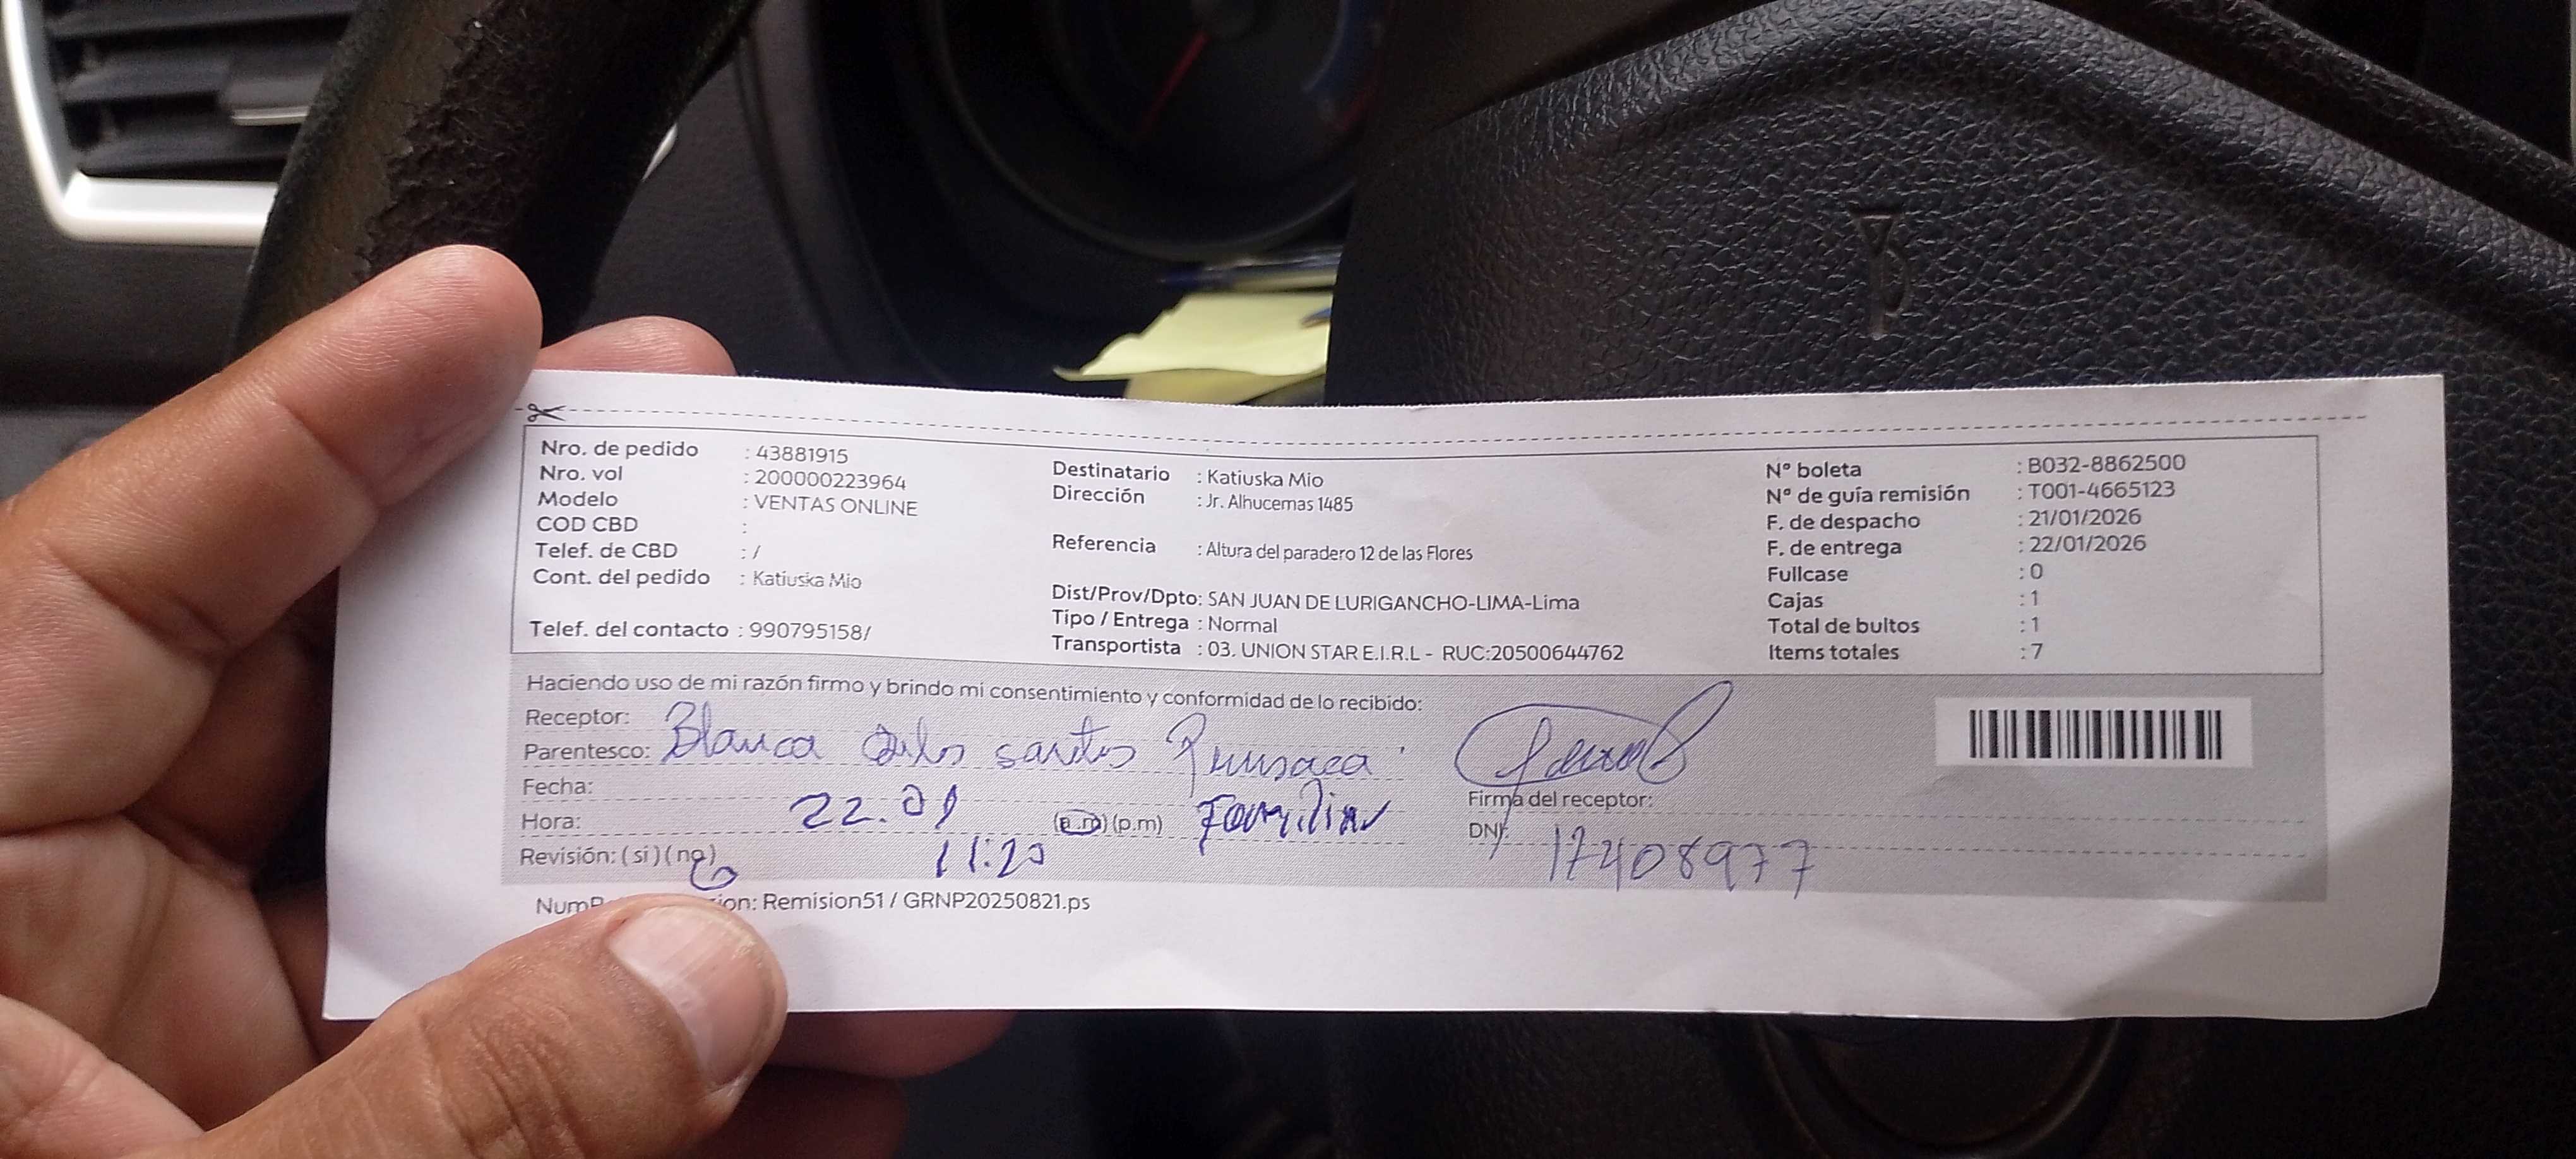 Nro. de pedido : 43881915
Nro. vol : 200000223964
Modelo : VENTAS ONLINE
COD CBD :
Telef. de CBD : /
Cont. del pedido : Katiuska Mio
Telef. del contacto : 990795158/
Destinatario : Katiuska Mio
Dirección : Jr. Alhucemas 1485
Referencia : Altura del paradero 12 de las Flores
Dist/Prov/Dpto: SAN JUAN DE LURIGANCHO-LIMA-Lima
Tipo / Entrega : Normal
Transportista : 03. UNION STAR E.I.R.L - RUC:20500644762
Nº boleta : B032-8862500
Nº de guía remisión : T001-4665123
F. de despacho : 21/01/2026
F. de entrega : 22/01/2026
Fullcase : 0
Cajas : 1
Total de bultos : 1
Items totales : 7
Haciendo uso de mi razón firmo y brindo mi consentimiento y conformidad de lo recibido:
Receptor:
Parentesco: Blanca santos
Fecha:
22.01 Familiar
Hora: (a.m) (p.m)
11:20
Revisión: (si) (no)
Firma del receptor:
DNI: 17408977
ion: Remision51 / GRNP20250821.ps